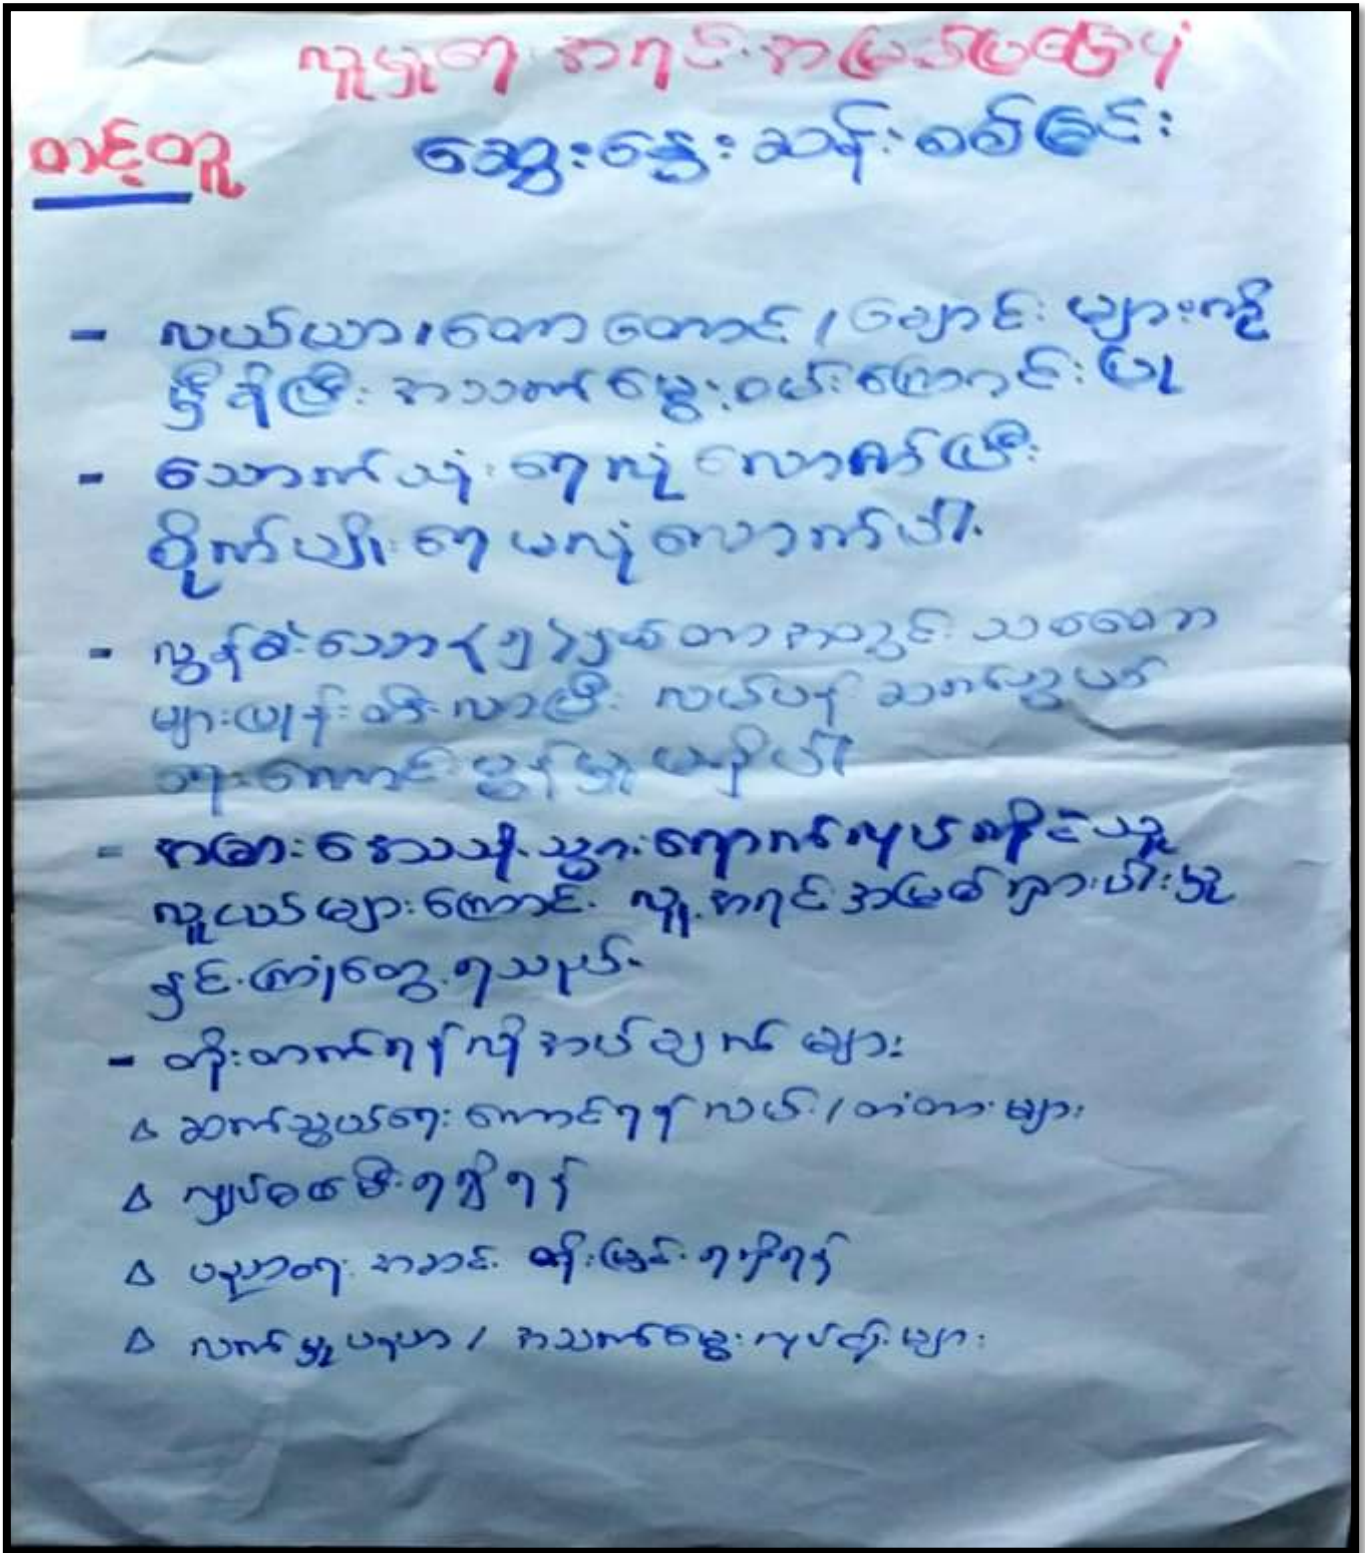 လူမှုရေး အရင်းအမြစ်ပြမြေပုံ
တင့်တူ ဆွေးနွေးဆန်းစစ်ခြင်း
- လယ်ယာ၊ တောတောင် / ချောင်း များကို
မှီခိုပြီး အသက်မွေးဝမ်းကြောင်းပြု
- သောက်သုံးရေလုံလောက်ပြီး
စိုက်ပျိုးရေမလုံလောက်ပါ။
- လွန်ခဲ့သော (၅) နှစ်တာအတွင်း သစ်တော
များပြုန်းတီးလာပြီး လယ်ပန်
ကောင်မွန်မှုမရှိပါ
- အခြားဒေသသို့သွားရောက်လုပ်ကိုင်သူ
လူငယ်များကြောင့် လူ့အရင်အမြစ်ရှားပါးမှု
နှင့်ကြုံတွေ့ရသည်။
- တိုးတက်ရန်လိုအပ်ချက်များ
△ ဆက်သွယ်ရေးကောင်ရန်လမ်း / တံတားများ
△ လျှပ်စစ်မီးရရှိရန်
△ ပညာရေးအဆင့် တိုးမြှင့်ရရှိရန်
△ လက်မှုပညာ / အသက်မွေးလုပ်ငန်းများ